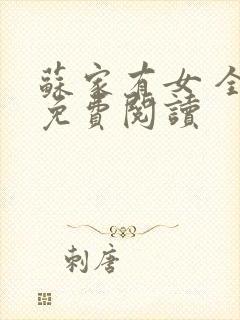 蘇家有女 全
免費閱讀
刺唐